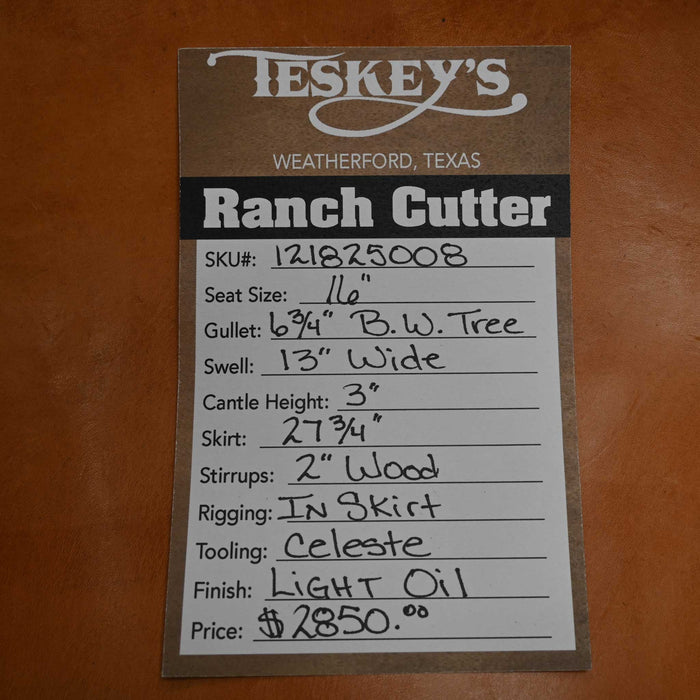 TESKEY'S
WEATHERFORD, TEXAS
Ranch Cutter
SKU#: 121825008
Seat Size: 16"
Gullet: 6 3/4" B.W. Tree
Swell: 13" Wide
Cantle Height: 3"
Skirt: 27 3/4"
Stirrups: 2" Wood
Rigging: In Skirt
Tooling: Celeste
Finish: LIGHT Oil
Price: $2850.00